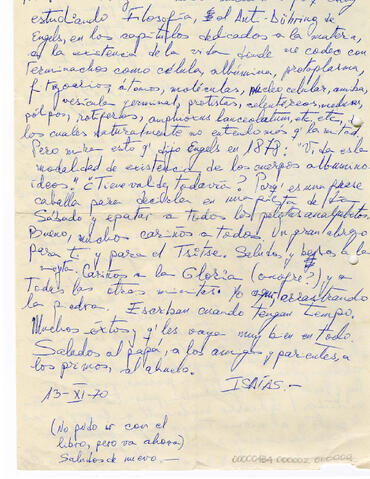 estudiando Filosofía, el Anti-Dühring de
Engels, en los capítulos dedicados a la materia,
a la existencia de la vida donde me codeo con
terminachos como célula, albumina, protoplasma,
átomos, moléculas, núcleo celular, amiba,
vesícula germinal, protistas, celentéreos, medusas,
pólipos, amphioxus lanceolatum, etc, etc,
los cuales naturalmente no entiendo más q' la mitad.
Pero mira esto q' dijo Engels en 1878: "Vida es la
modalidad de existencia de los cuerpos albumino-
ideos." ¿Tiene validez todavía? es una frase
cabella para decirla en una de
Sábado y epatar a todos los analfabetos.
Bueno, muchos cariños a todos. Un gran abrazo
para ti y para el Saludos y besos a la
Cariños a la Gloria ( ?) y a
Todas las otras mientras Yo arrastrando
la piedra. Escriban cuando tengan tiempo.
Muchos éxitos y q' les vaya muy bien en todo.
Saludos al papá, a los amigos y parientes, a
los primos, al abuelo.
ISAÍAS.—
13-XI-70
(No pudo ir con el
libro, pero va ahora)
Saludos de nuevo.—